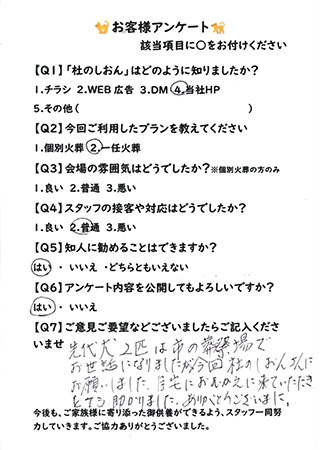 お客様アンケート
該当項目に○をお付けください
【Q1】「杜のしおん」はどのように知りましたか?
1.チラシ 2.WEB広告 3.DM 4.当社HP
5.その他( )
【Q2】今回ご利用したプランを教えてください
1.個別火葬 2.一任火葬
【Q3】会場の雰囲気はどうでしたか?※個別火葬の方のみ
1.良い 2.普通 3.悪い
【Q4】スタッフの接客や対応はどうでしたか?
1.良い 2.普通 3.悪い
【Q5】知人に勧めることはできますか?
はい ・ いいえ ・どちらともいえない
【Q6】アンケート内容を公開してもよろしいですか?
はい ・ いいえ
【Q7】ご意見ご要望などございましたらご記入くださ
いませ 先代犬2匹は市の葬祭場で
お世話になりましたが今回杜のしおんさんに
お願いしました。自宅におむかえに来ていただき
とても助かりました。ありがとうございました。
今後も、ご家族様に寄り添った御供養ができるよう、スタッフ一同努
力していきます。ご協力ありがとうございました。